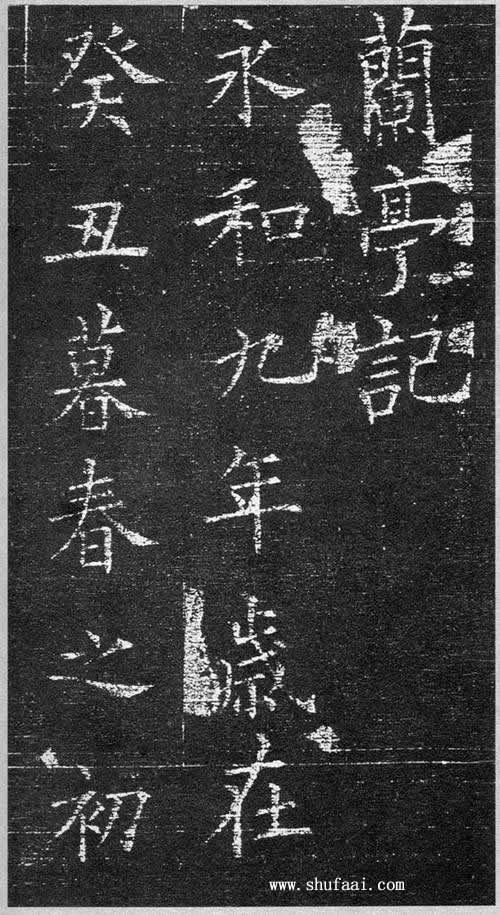 蘭亭記
永和九年歲在
癸丑暮春之初
www.shufaai.com